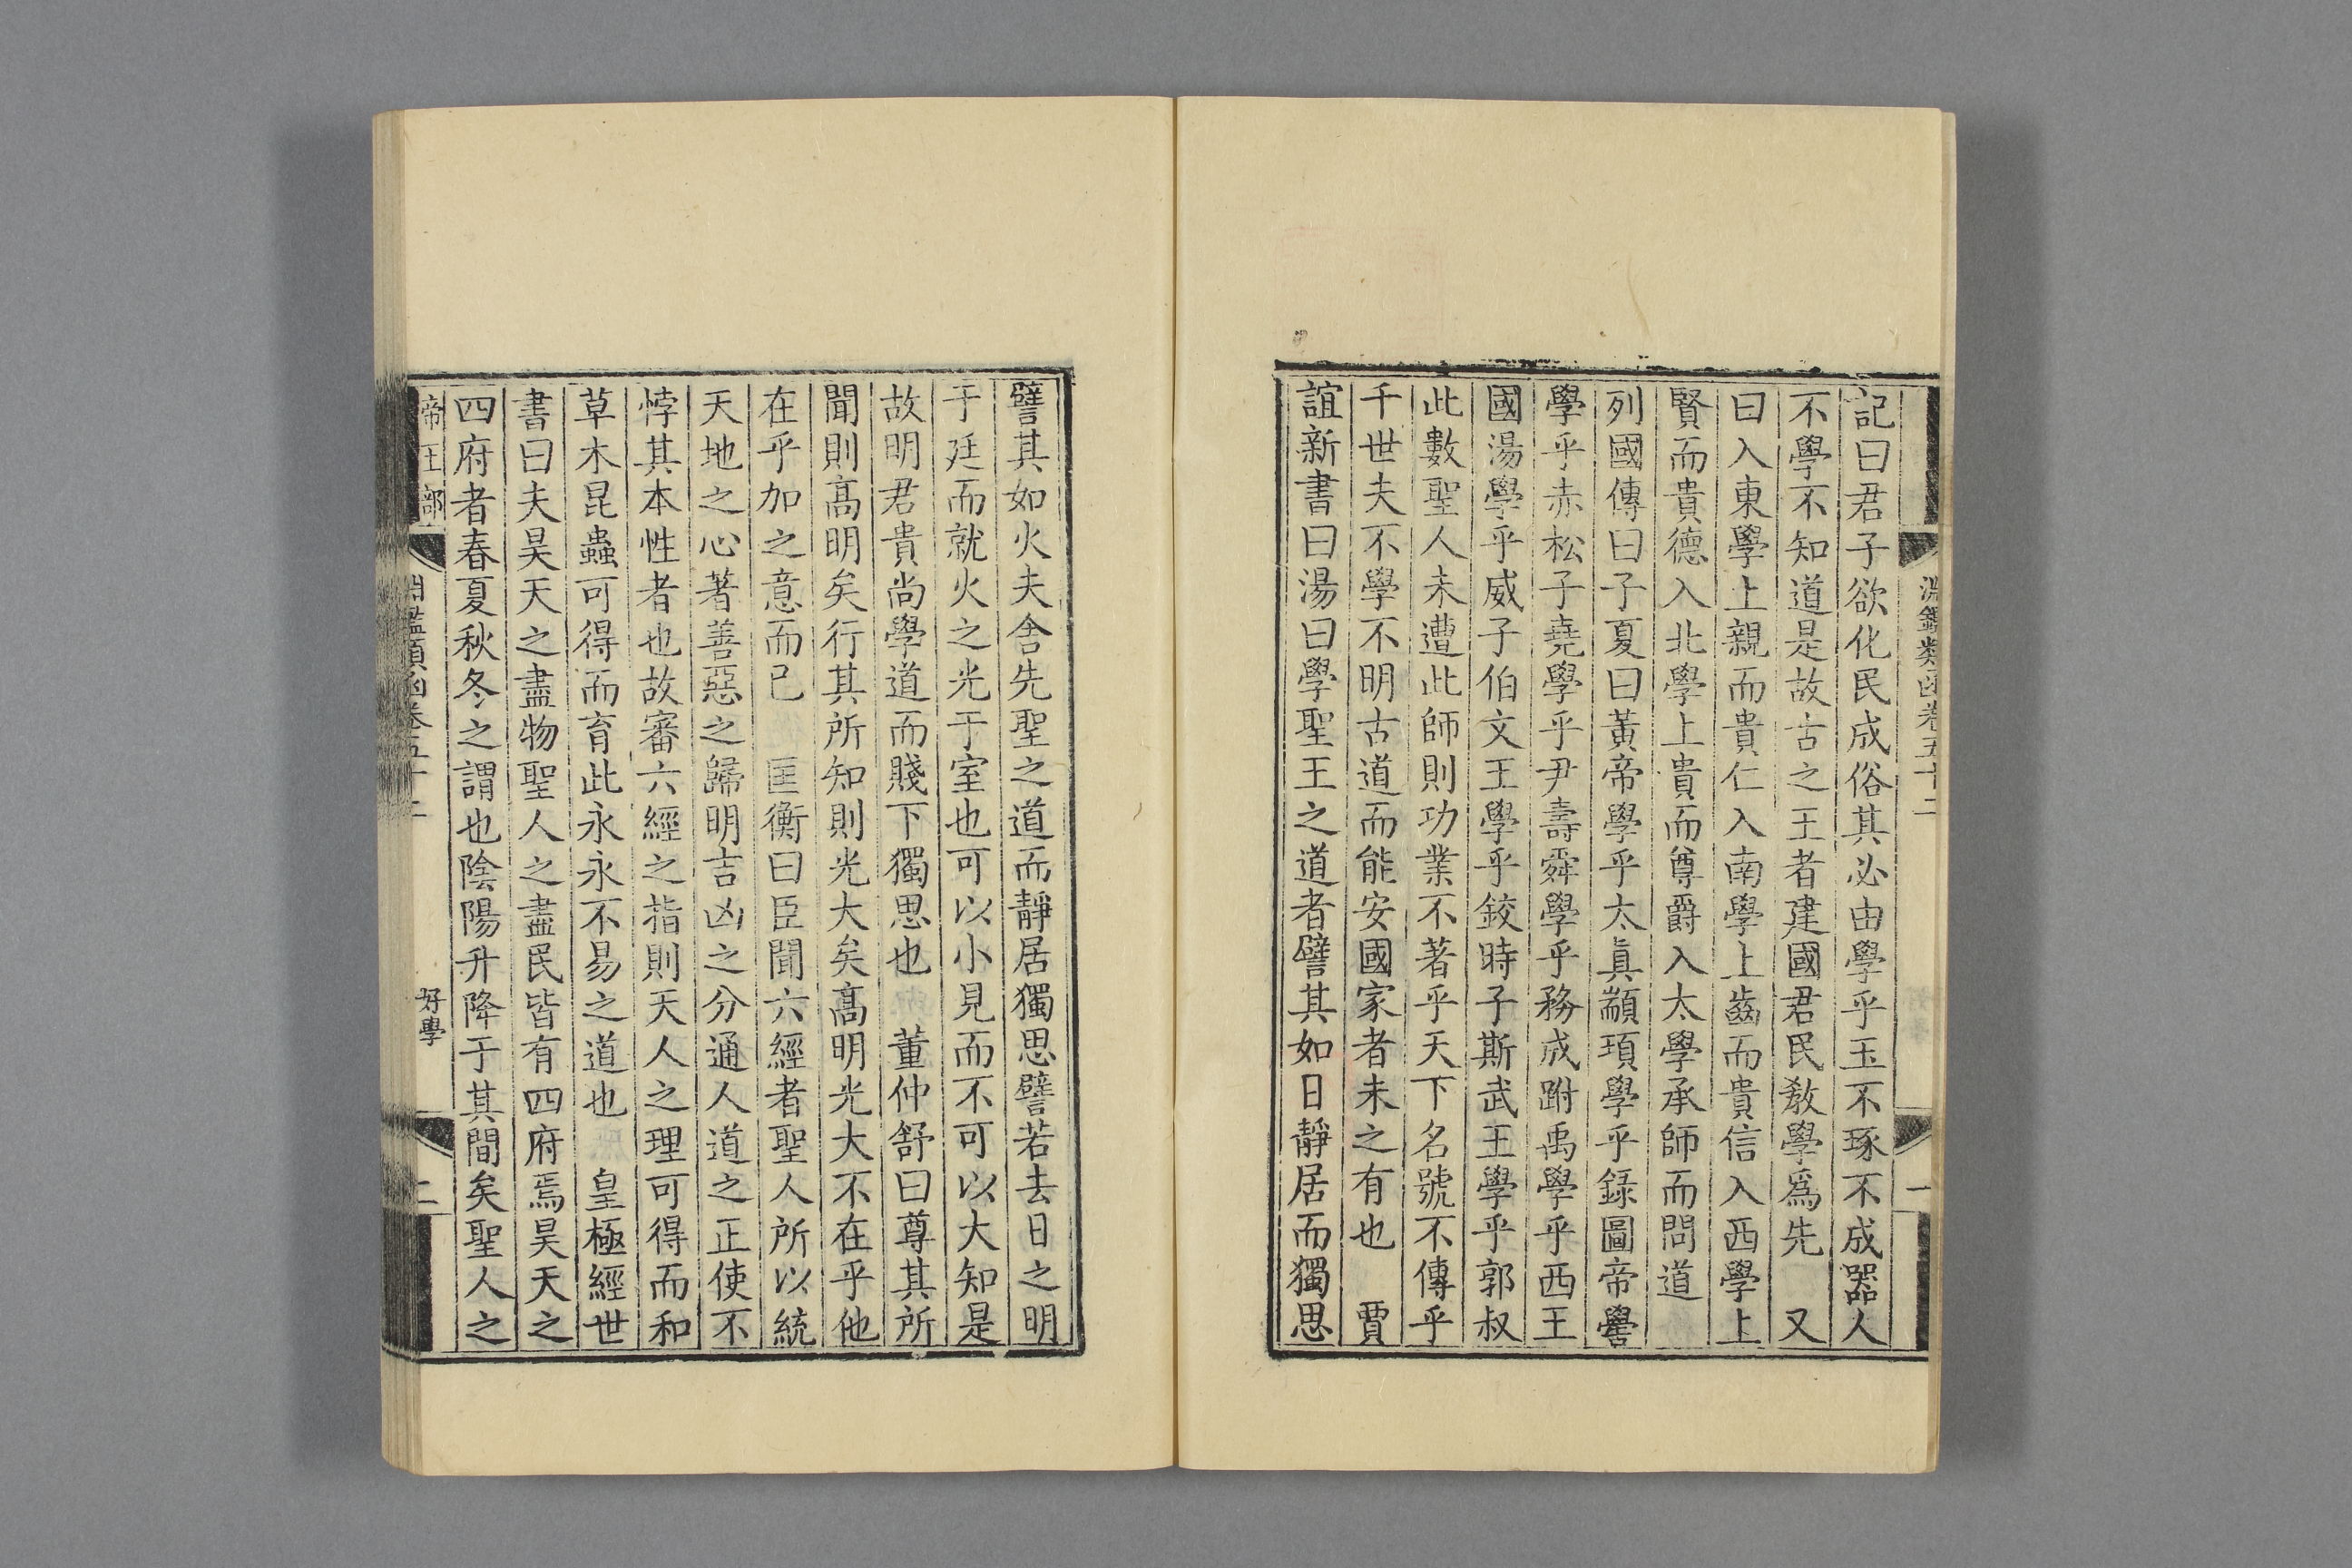 淵鑑類函卷五十二
一
記曰君子欲化民成俗其必由學乎玉不琢不成器人
不學不知道是故古之王者建國君民教學爲先　又
曰入東學上親而貴仁入南學上齒而貴信入西學上
賢而貴德入北學上貴而尊爵入太學承師而問道
列國傳曰子夏曰黃帝學乎太眞顓頊學乎錄圖帝嚳
學乎赤松子堯學乎尹壽舜學乎務成跗禹學乎西王
國湯學乎威子伯文王學乎鉸時子斯武王學乎郭叔
此數聖人未遭此師則功業不著乎天下名號不傳乎
千世夫不學不明古道而能安國家者未之有也　賈
誼新書曰湯曰學聖王之道者譬其如日靜居而獨思
譬其如火夫舍先聖之道而靜居獨思譬若去日之明
于廷而就火之光于室也可以小見而不可以大知是
故明君貴尚學道而賤下獨思也　董仲舒曰尊其所
聞則高明矣行其所知則光大矣高明光大不在乎他
在乎加之意而已　匡衡曰臣聞六經者聖人所以統
天地之心著善惡之歸明吉凶之分通人道之正使不
悖其本性者也故審六經之指則天人之理可得而和
草木昆蟲可得而育此永永不易之道也　皇極經世
書曰夫昊天之盡物聖人之盡民皆有四府焉昊天之
四府者春夏秋冬之謂也陰陽升降于其間矣聖人之
帝王部
淵鑑類函卷五十二
好學
二